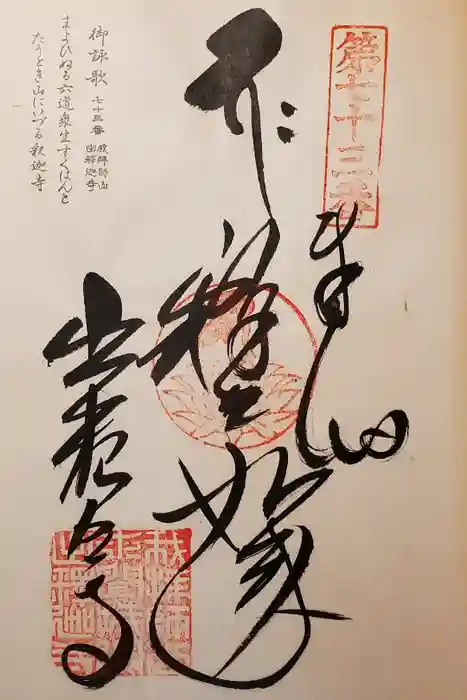 第七十三番
奉納
釋迦如来
出釈迦寺
御詠歌 七十三番 我拝師山 出釈迦寺
まよひぬる六道衆生すくはんと
たうとき山にいづる釈迦寺